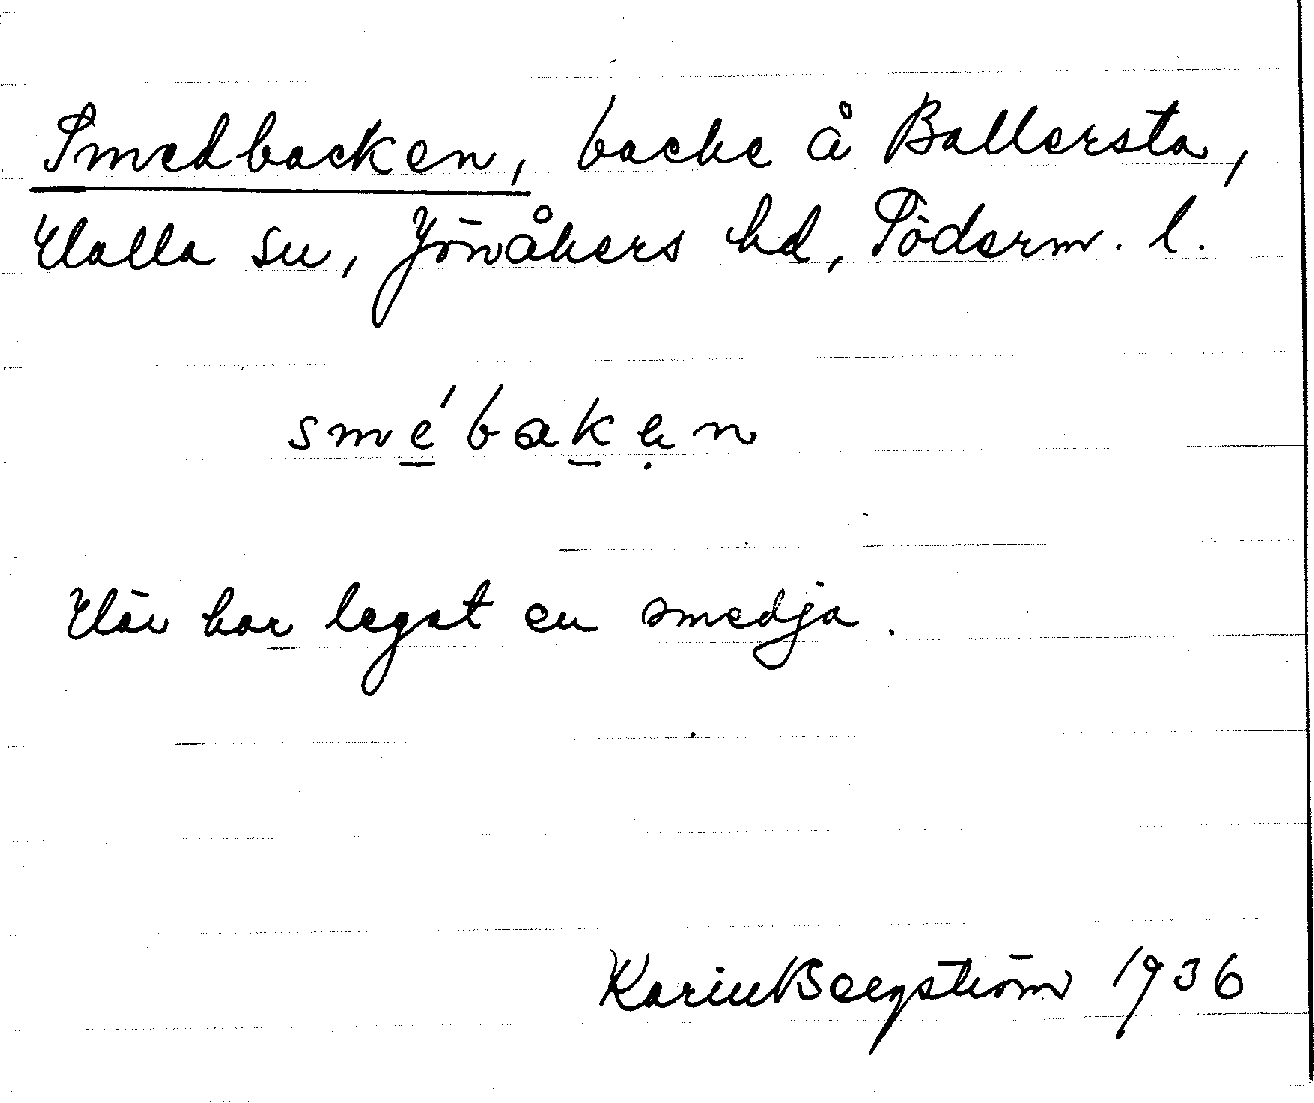 Smedbacken, backe å Ballersta,
Halla sn, Jönåkers hd, Söderm. l.
smébaken
Här har legat en smedja.
Karin Bergström 1936